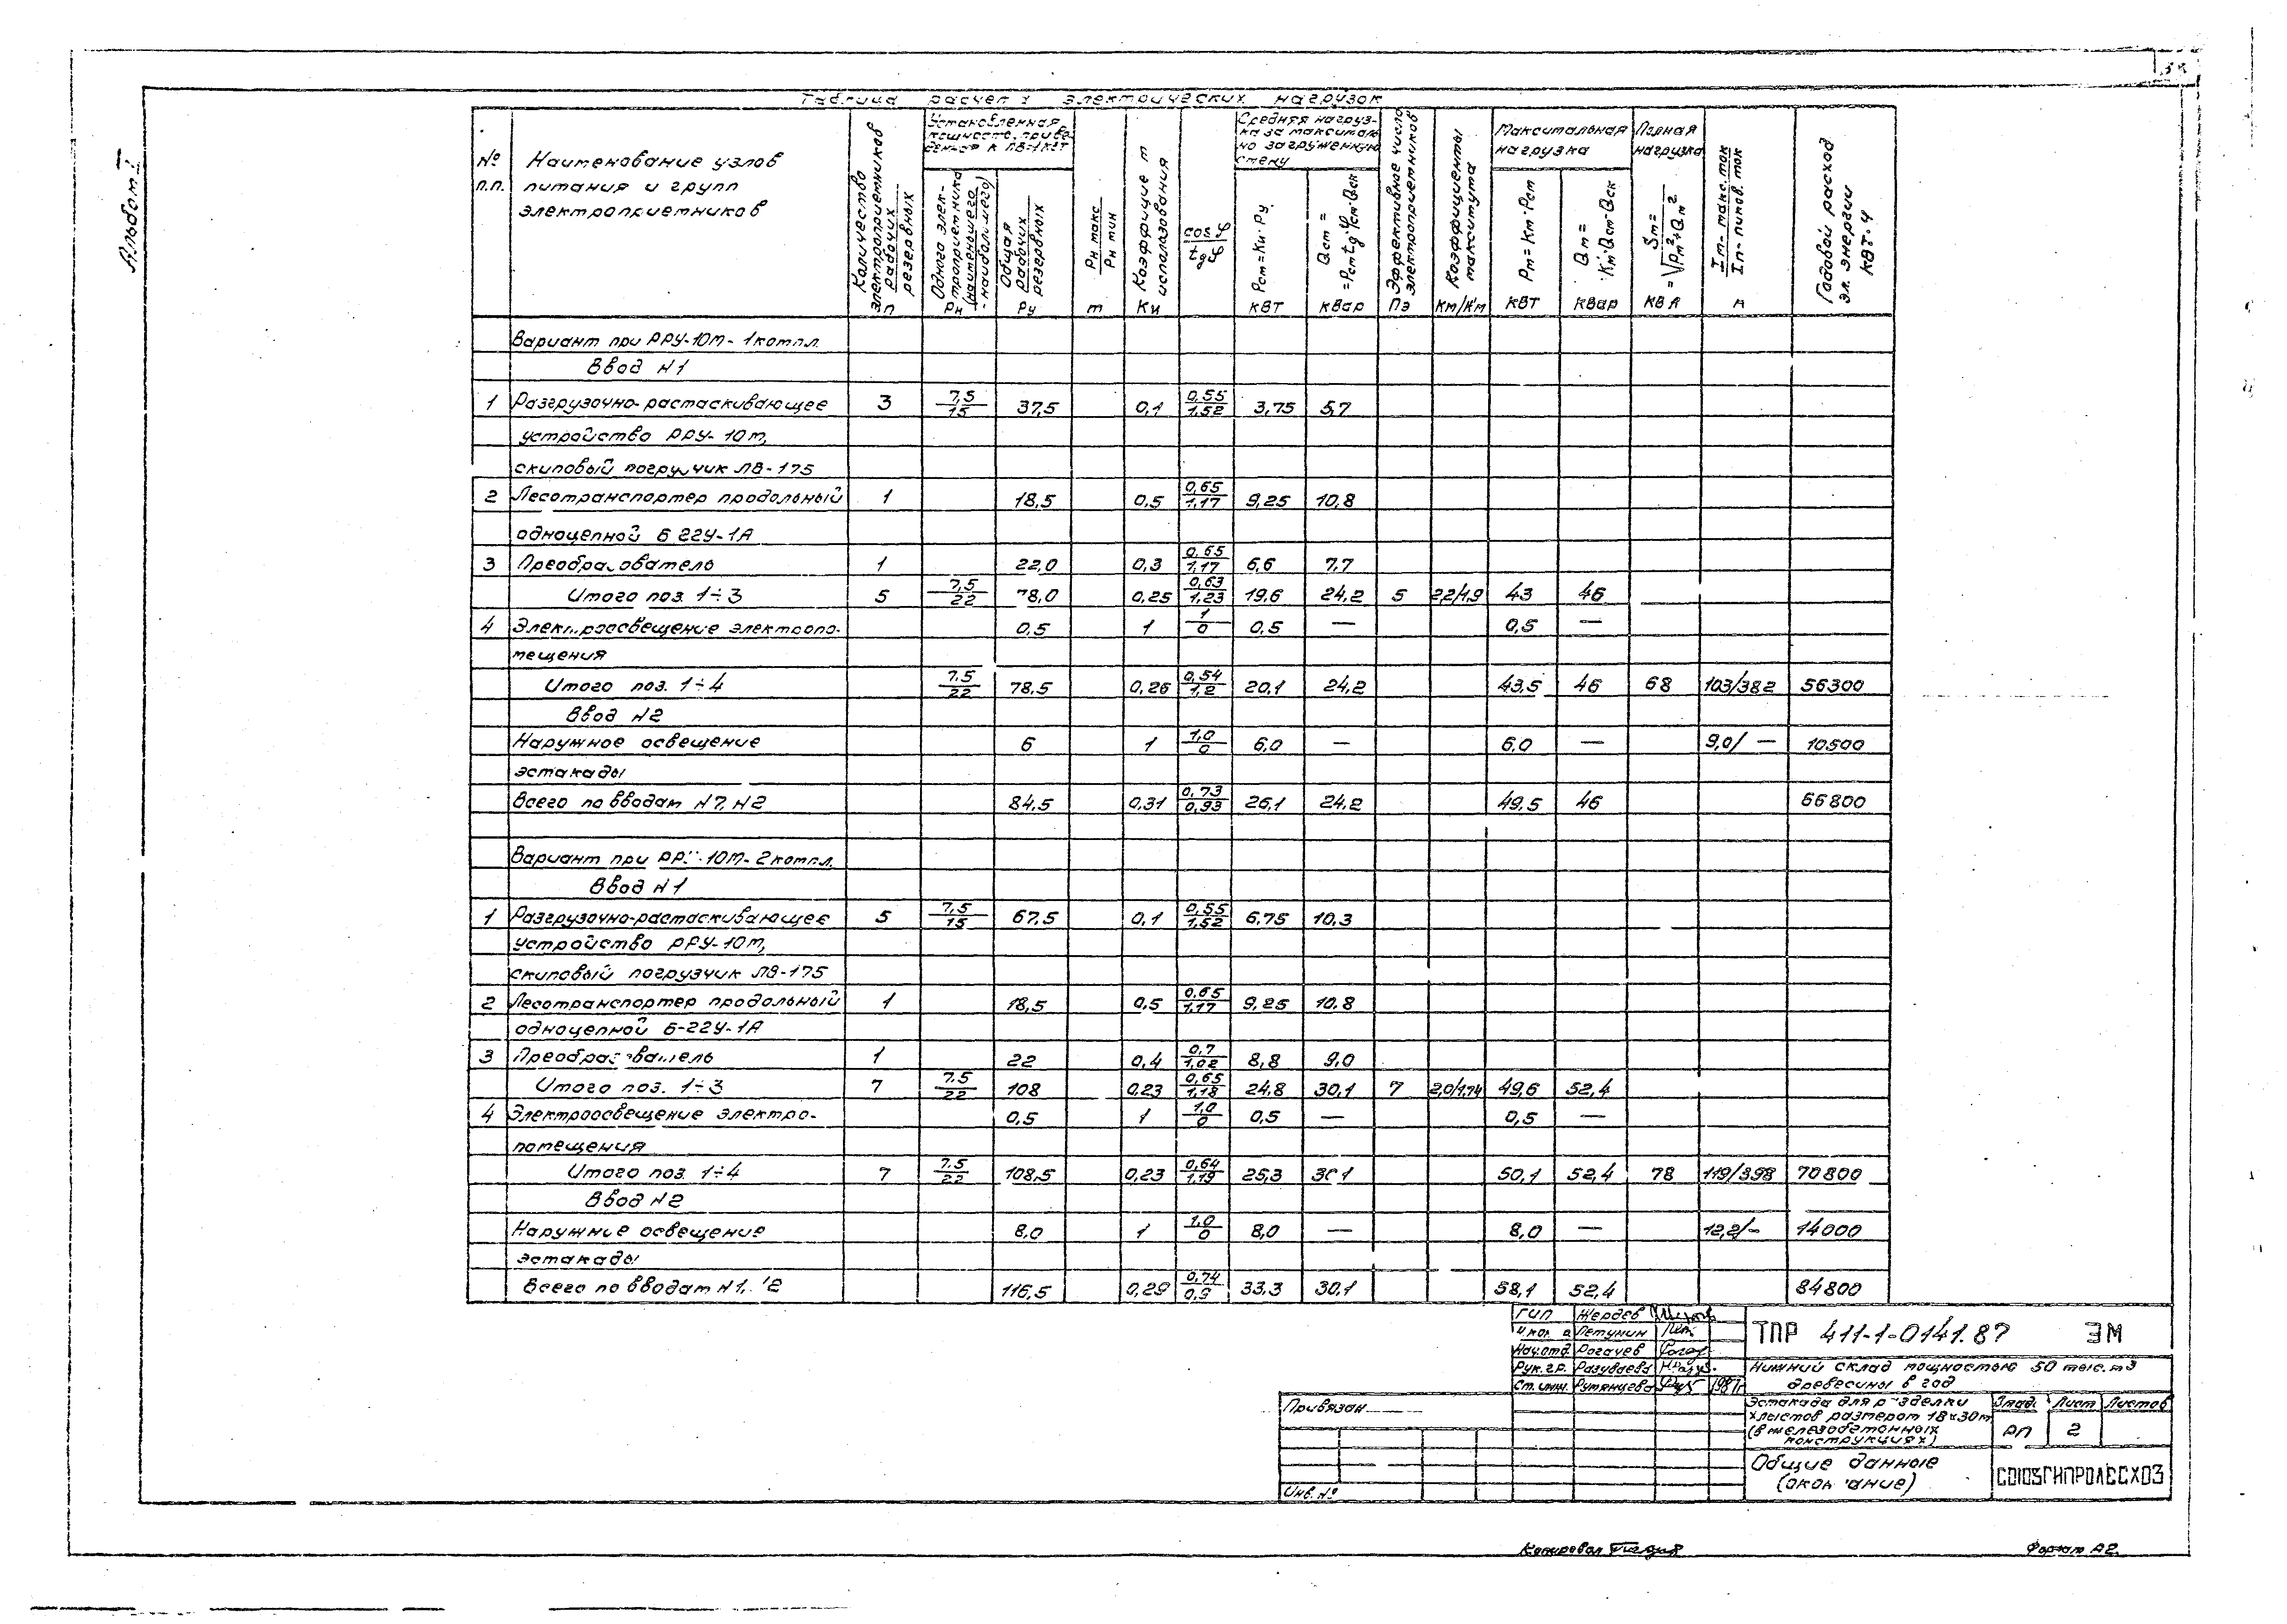 Альбом I
Таблица расчета электрических нагрузок
№ п.п.
Наименование узлов
питания и групп
электроприемников
Количество электроприемников рабочих резервных n
Установленная мощность, приведенная к ПВ=1 кВт
Одного электроприемника (наименьшего - наибольшего) Рн
Общая рабочих резервных Ру
Рн макс / Рн мин m
Коэффициент использования Ки
cos φ / tg φ
Средняя нагрузка за максимально загруженную смену
Рсм=Ки·Ру кВт
Qсм = =Рсм tg φ квар
Эффективное число электроприемников Пэ
Коэффициенты максимума Км/К'м
Максимальная нагрузка
Рм=Км·Рсм кВт
Qм= К'м·Qсм квар
Полная нагрузка
Sм= =√Рм²+Qм² кВА
Iм-макс. ток Iп-пиков. ток А
Годовой расход эл. энергии кВт·ч
Вариант при РРУ-10м-1 компл.
Ввод N1
1 Разгрузочно-растаскивающее 3 7,5/15 37,5 0,1 0,55/1,52 3,75 5,7
устройство РРУ-10м,
скиповый погрузчик ЛВ-175
2 Лесотранспортер продольный 1 18,5 0,5 0,65/1,17 9,25 10,8
одноцепной Б 22У-1А
3 Преобразователь 1 22,0 0,3 0,65/1,17 6,6 7,7
Итого поз. 1÷3 5 7,5/22 78,0 0,25 0,63/1,23 19,6 24,2 5 2,2/1,9 43 46
4 Электроосвещение электропо- 0,5 1 1/0 0,5 — 0,5 —
мещения
Итого поз. 1÷4 7,5/22 78,5 0,26 0,54/1,2 20,1 24,2 43,5 46 68 103/382 56300
Ввод N2
Наружное освещение 6 1 1,0/0 6,0 — 6,0 — 9,0/— 10500
эстакады
Всего по вводам N1, N2 84,5 0,31 0,73/0,93 26,1 24,2 49,5 46 66800
Вариант при РРУ-10м-2 компл.
Ввод N1
1 Разгрузочно-растаскивающее 5 7,5/15 67,5 0,1 0,55/1,52 6,75 10,3
устройство РРУ-10м,
скиповый погрузчик ЛВ-175
2 Лесотранспортер продольный 1 18,5 0,5 0,65/1,17 9,25 10,8
одноцепной Б-22У-1А
3 Преобразователь 1 22 0,4 0,7/1,02 8,8 9,0
Итого поз. 1÷3 7 7,5/22 108 0,23 0,65/1,18 24,8 30,1 7 2,0/1,74 49,6 52,4
4 Электроосвещение электро- 0,5 1 1,0/0 0,5 — 0,5 —
помещения
Итого поз. 1÷4 7 7,5/22 108,5 0,23 0,64/1,19 25,3 30,1 50,1 52,4 78 119/398 70800
Ввод N2
Наружные освещение 8,0 1 1,0/0 8,0 — 8,0 — 12,2/- 14000
эстакады
Всего по вводам N1, 2 116,5 0,29 0,74/0,9 33,3 30,1 58,1 52,4 84800
ГИП Жердев
Н.кон. Петунин
Нач.отд Рогачев
Рук.гр. Разуваева
Ст.инж. Румянцева 1987г
ТПР 411-1-0141.87 ЭМ
Нижний склад мощностью 50 тыс. м3
древесины в год
Эстакада для разделки
хлыстов размером 18х30м
(в железобетонных
конструкциях)
Стад. Лист Листов
РП 2
Общие данные
(окончание)
СОЮЗГИПРОЛЕСХОЗ
Привязан
Инв. №
Копировал
Формат А2